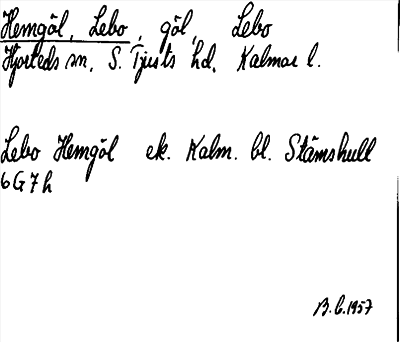 Hemgöl, Lebo, göl, Lebo
Hjorteds sn, S. Tjusts hd, Kalmar l.
Lebo Hemgöl ek. Kalm. bl. Stämshult
6G7h
B.G.1957